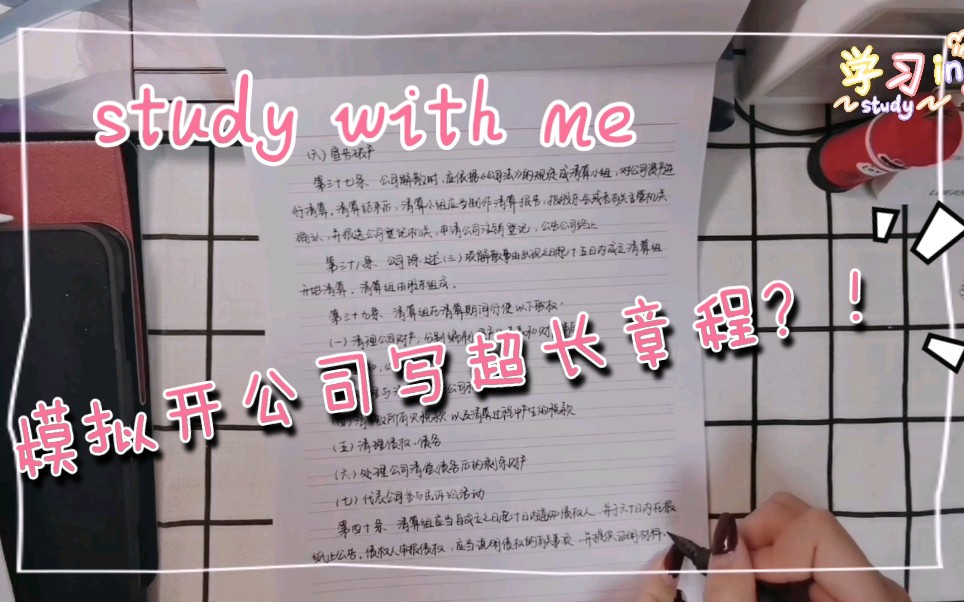 学习in
~study~
study with me
(六)宣告破产
第三十七条、公司解散时,应依据《公司法》的规定成立清算小组,对公司资产进
行清算。清算结束后,清算小组应当制作清算报告,报股东会或者有关主管机关
确认,并报送公司登记机关,申请公司注销登记,公告公司终止
第三十八条、公司
(三)项解散事由出现之日起十五日内成立清算组
开始清算。清算组由股东组成。
第三十九条、清算组在清算期间行使以下职权:
(一)清理公司财产,分别编制
模拟开公司写超长章程?!
所欠税款以及清算过程中产生的税款
(五)清理债权、债务
(六)处理公司清偿债务后的剩余财产
(七)代表公司参与民事诉讼活动
第四十条、清算组应当自成立之日起十日内通知债权人,并于六十日内在报
纸上公告。债权人申报债权,应当说明债权的有关事项,并提供证明材料。